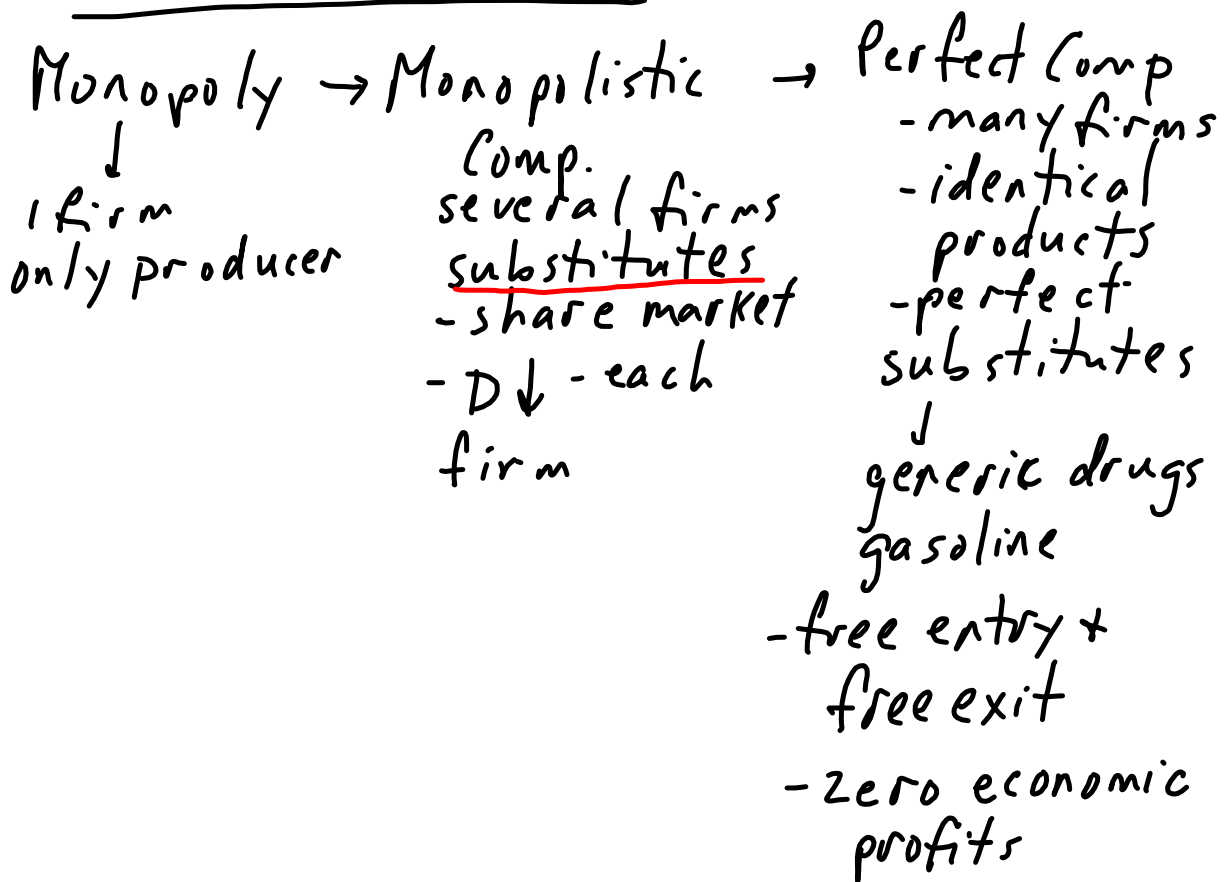 Monopoly → Monopolistic Comp. → Perfect Comp
↓
1 firm
only producer
several firms
substitutes
- share market
- D↓ - each
firm
- many firms
- identical
products
- perfect
substitutes
↓
generic drugs
gasoline
- free entry +
free exit
- zero economic
profits